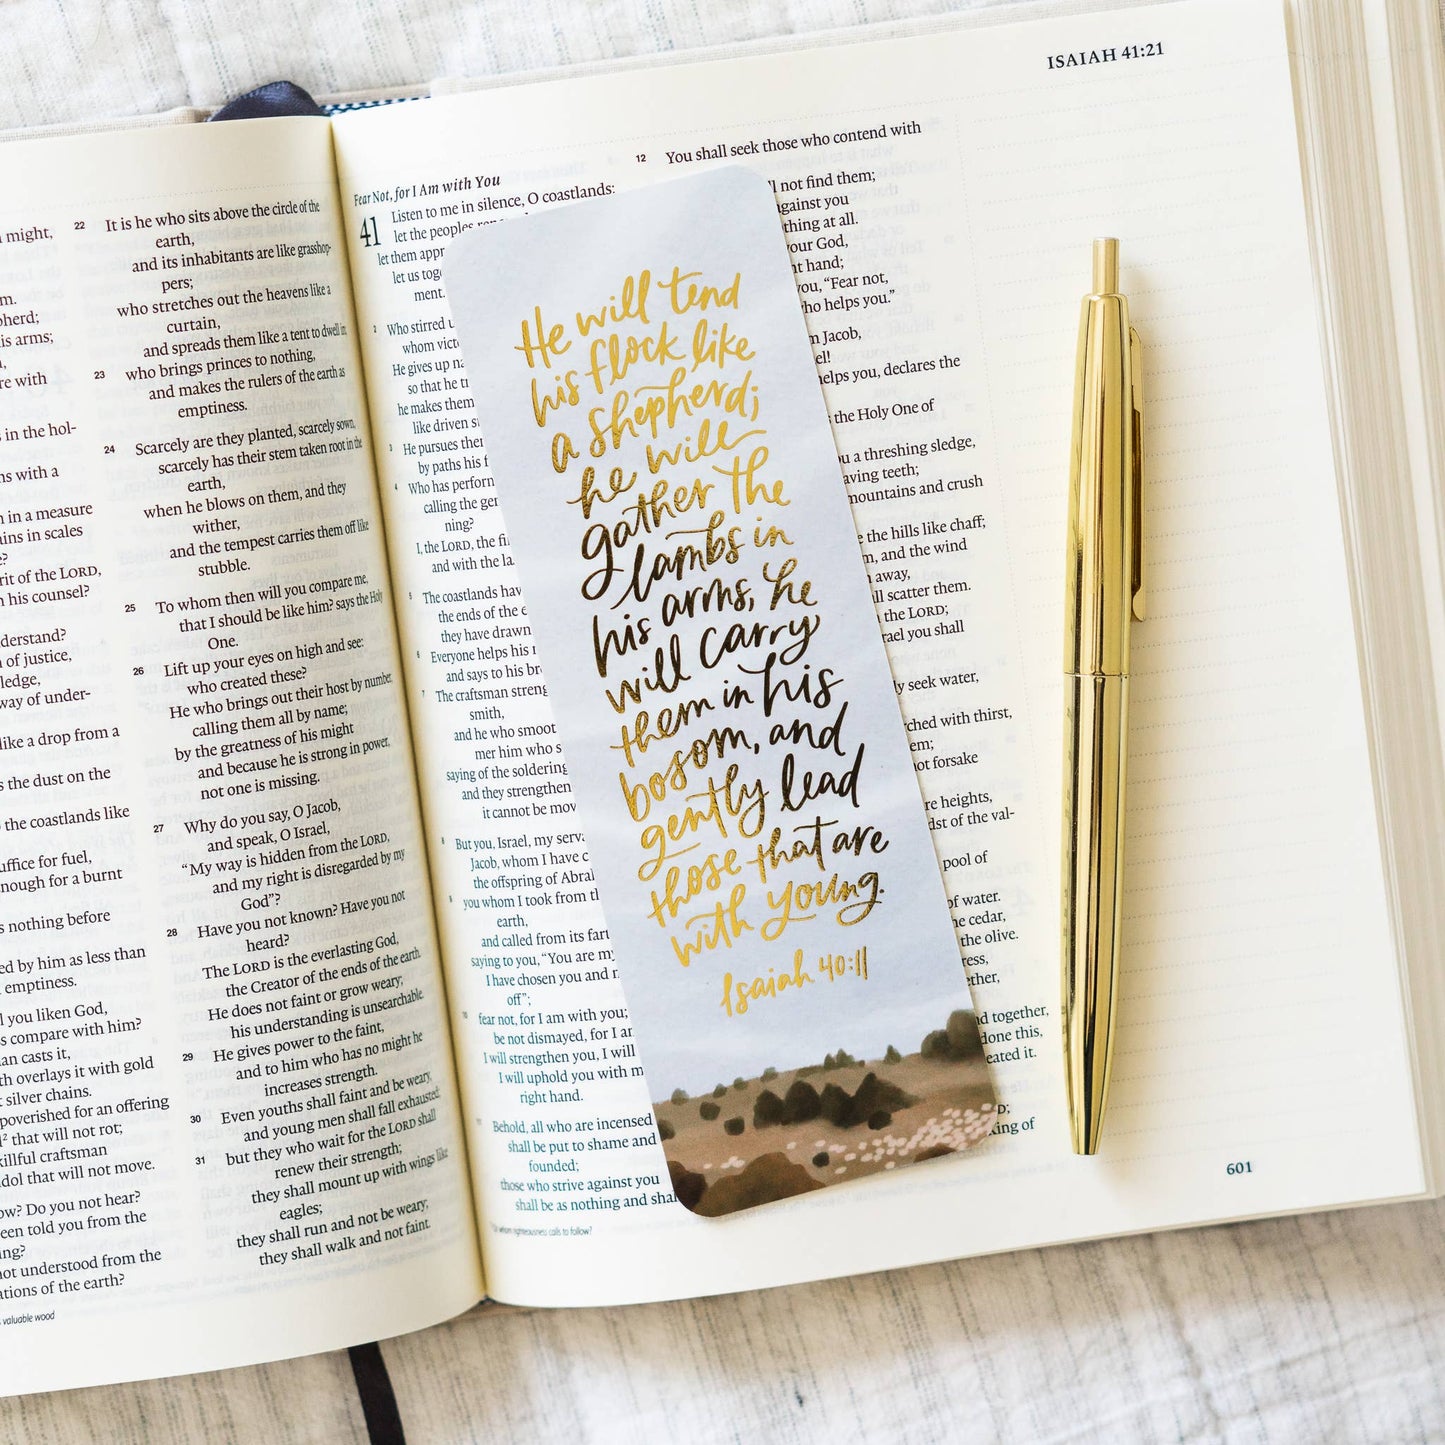 might,
m.
herd;
is arms;
re with
in the hol-
ns with a
in a measure
ains in scales
e?
rit of the LORD,
n his counsel?
derstand?
of justice,
ledge,
way of under-
like a drop from a
s the dust on the
the coastlands like
uffice for fuel,
nough for a burnt
s nothing before
ed by him as less than
emptiness.
l you liken God,
ss compare with him?
an casts it,
th overlays it with gold
silver chains.
poverished for an offering
² that will not rot;
killful craftsman
dol that will not move.
ow? Do you not hear?
een told you from the
ing?
not understood from the
ations of the earth?
valuable wood
22 It is he who sits above the circle of the
earth,
and its inhabitants are like grasshop-
pers;
who stretches out the heavens like a
curtain,
and spreads them like a tent to dwell in;
23 who brings princes to nothing,
and makes the rulers of the earth as
emptiness.
24 Scarcely are they planted, scarcely sown,
scarcely has their stem taken root in the
earth,
when he blows on them, and they
wither,
and the tempest carries them off like
stubble.
25 To whom then will you compare me,
that I should be like him? says the Holy
One.
26 Lift up your eyes on high and see:
who created these?
He who brings out their host by number,
calling them all by name;
by the greatness of his might
and because he is strong in power,
not one is missing.
27 Why do you say, O Jacob,
and speak, O Israel,
“My way is hidden from the LORD,
and my right is disregarded by my
God”?
28 Have you not known? Have you not
heard?
The LORD is the everlasting God,
the Creator of the ends of the earth.
He does not faint or grow weary;
his understanding is unsearchable.
29 He gives power to the faint,
and to him who has no might he
increases strength.
30 Even youths shall faint and be weary,
and young men shall fall exhausted;
31 but they who wait for the LORD shall
renew their strength;
they shall mount up with wings like
eagles;
they shall run and not be weary;
they shall walk and not faint.
ISAIAH 41:21
Fear Not, for I Am with You
41 Listen to me in silence, O coastlands;
let the peoples
let them appr
let us tog
ment.
2 Who stirred u
whom vict
He gives up na
so that he tr
he makes them
like driven s
3 He pursues them
by paths his f
4 Who has perform
calling the gen
ning?
I, the LORD, the fi
and with the la
5 The coastlands hav
the ends of the e
they have drawn
6 Everyone helps his
and says to his br
7 The craftsman streng
smith,
and he who smoot
mer him who s
saying of the soldering
and they strengthen
it cannot be mov
8 But you, Israel, my serv
Jacob, whom I have c
the offspring of Abra
9 you whom I took from th
earth,
and called from its fart
saying to you, “You are my
I have chosen you and n
off”;
10 fear not, for I am with you;
be not dismayed, for I am
I will strengthen you, I will
I will uphold you with m
right hand.
11 Behold, all who are incensed
shall be put to shame and
founded;
those who strive against you
shall be as nothing and shal
whom righteousness calls to follow?
He will tend
his flock like
a shepherd;
he will
gather the
lambs in
his arms, he
will carry
them in his
bosom, and
gently lead
those that are
with young.
Isaiah 40:11
12 You shall seek those who contend with
ll not find them;
gainst you
thing at all.
our God,
t hand;
ou, “Fear not,
ho helps you.”
m Jacob,
el!
elps you, declares the
the Holy One of
u a threshing sledge,
aving teeth;
mountains and crush
e the hills like chaff;
m, and the wind
away,
ll scatter them.
the LORD;
rael you shall
y seek water,
ched with thirst,
em;
not forsake
re heights,
dst of the val-
pool of
of water.
he cedar,
the olive.
ress,
ether,
nd together,
done this,
eated it.
D;
King of
601